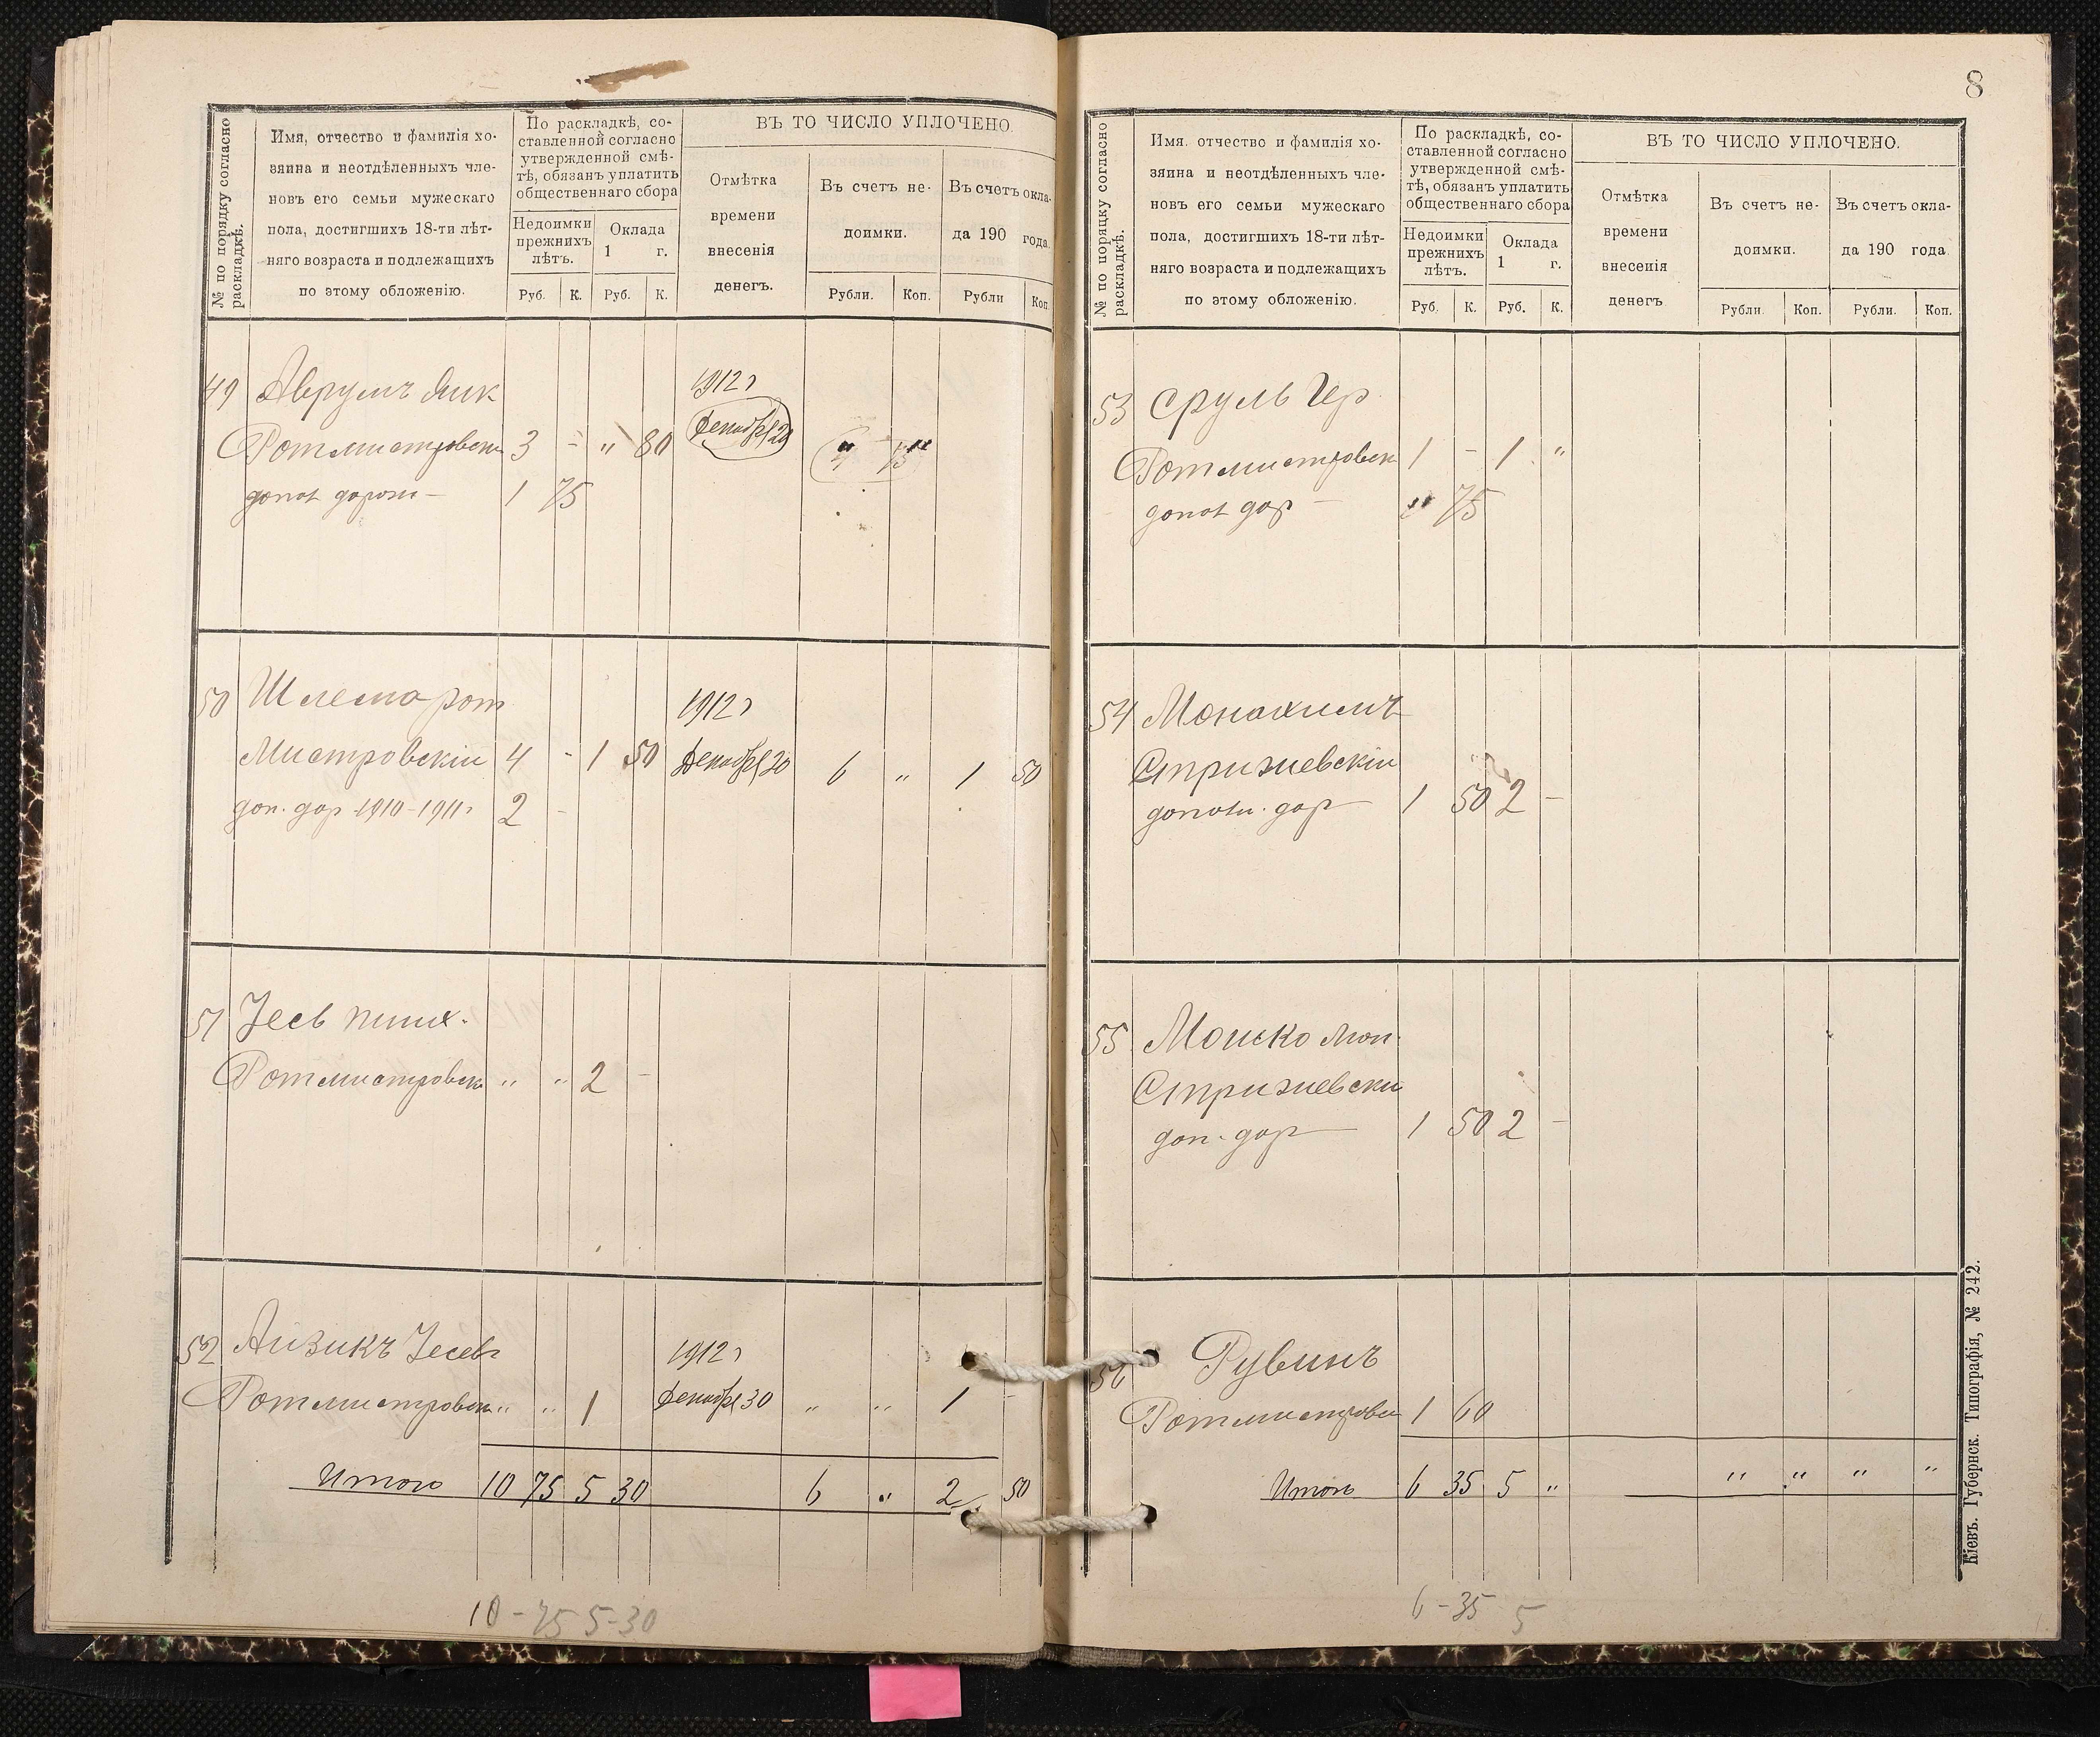 № по порядку согласно раскладкѣ.
Имя, отчество и фамилія хо-
зяина и неотдѣленныхъ чле-
новъ его семьи мужескаго
пола, достигшихъ 18-ти лѣт-
няго возраста и подлежащихъ
по этому обложенію.
По раскладкѣ, со-
ставленной согласно
утвержденной смѣ-
тѣ, обязанъ уплатить
общественнаго сбора
Недоимки
прежнихъ
лѣтъ.
Оклада
1 г.
Руб. К. Руб. К.
ВЪ ТО ЧИСЛО УПЛОЧЕНО.
Отмѣтка
времени
внесенія
денегъ.
Въ счетъ не-
доимки.
Въ счетъ окла-
да 190 года.
Рубли. Коп. Рубли Коп
49 Аврумъ
Ротмистровск 3 - " 80
1 75
1912 г
Декабря 20
50 Шлема Рот
Мистровскій 4 - 1 50
доп. дор 1910-1911 г 2 -
1912 г
Декабря 20 6 " 1 50
51 Іесь пинх.
Ротмистровск " " 2 -
52 Айзикъ Іесев
Ротмистровск " " 1
1912 г
Декабря 30 " " 1 -
Итого 10 75 5 30 6 " 2 50
10-75 5-30
8
№ по порядку согласно раскладкѣ.
Имя. отчество и фамилія хо-
зяина и неотдѣленныхъ чле-
новъ его семьи мужескаго
пола, достигшихъ 18-ти лѣт-
няго возраста и подлежащихъ
по этому обложенію.
По раскладкѣ, со-
ставленной согласно
утвержденной смѣ-
тѣ, обязанъ уплатить
общественнаго сбора
Недоимки
прежнихъ
лѣтъ.
Оклада
1 г.
Руб. К. Руб. К.
ВЪ ТО ЧИСЛО УПЛОЧЕНО.
Отмѣтка
времени
внесенія
денегъ
Въ счетъ не-
доимки.
Въ счетъ окла-
да 190 года
Рубли Коп. Рубли. Коп.
53 Сруль Гер
Ротмистровск 1 - 1 "
дор - " 75
54 Монахимъ
Стрижевскій
дор 1 50 2 -
55 Мошко Мон.
Стрижевски
доп. дор 1 50 2 -
56 Рувинъ
Ротмистровск 1 60
Итого 6 35 5 " " " " "
6-35 5
Кіевъ. Губернск. Типографія, № 242.